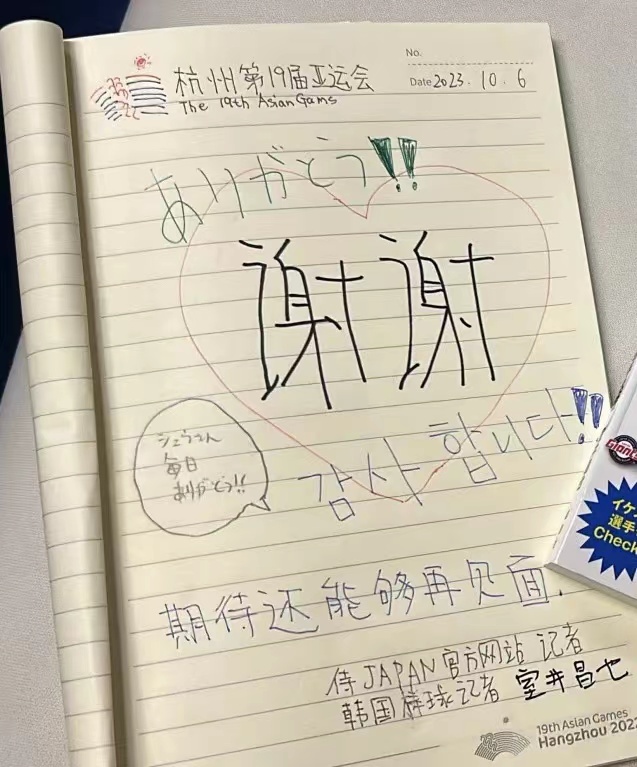 No.
杭州第19届亚运会
Date 2023. 10. 6
The 19th Asian Gams
ありがとう!!
谢谢
감사합니다!!
シュウさん
毎日
ありがとう!!
期待还能够再见面.
侍JAPAN官方网站 记者
韩国棒球记者 室井昌也
19th Asian Games
Hangzhou 2022
イケ
選手
Check